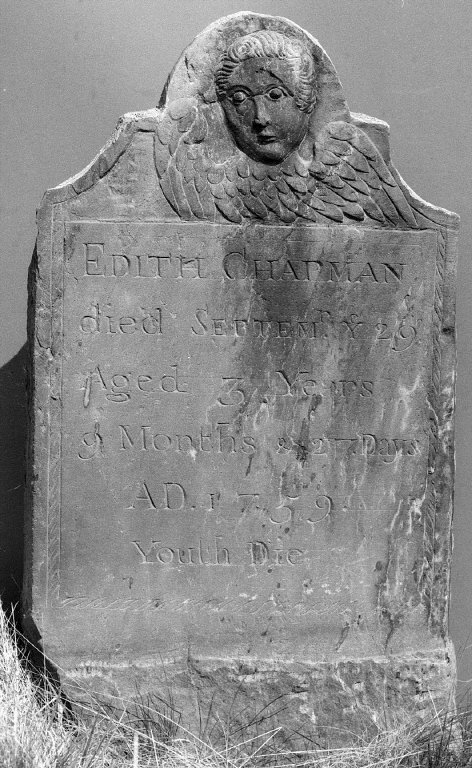 EDITH CHAPMAN
died SEPTEMr. ye 29
Aged 3 Years
9 Months & 27 Days
AD. 1759
Youth Die